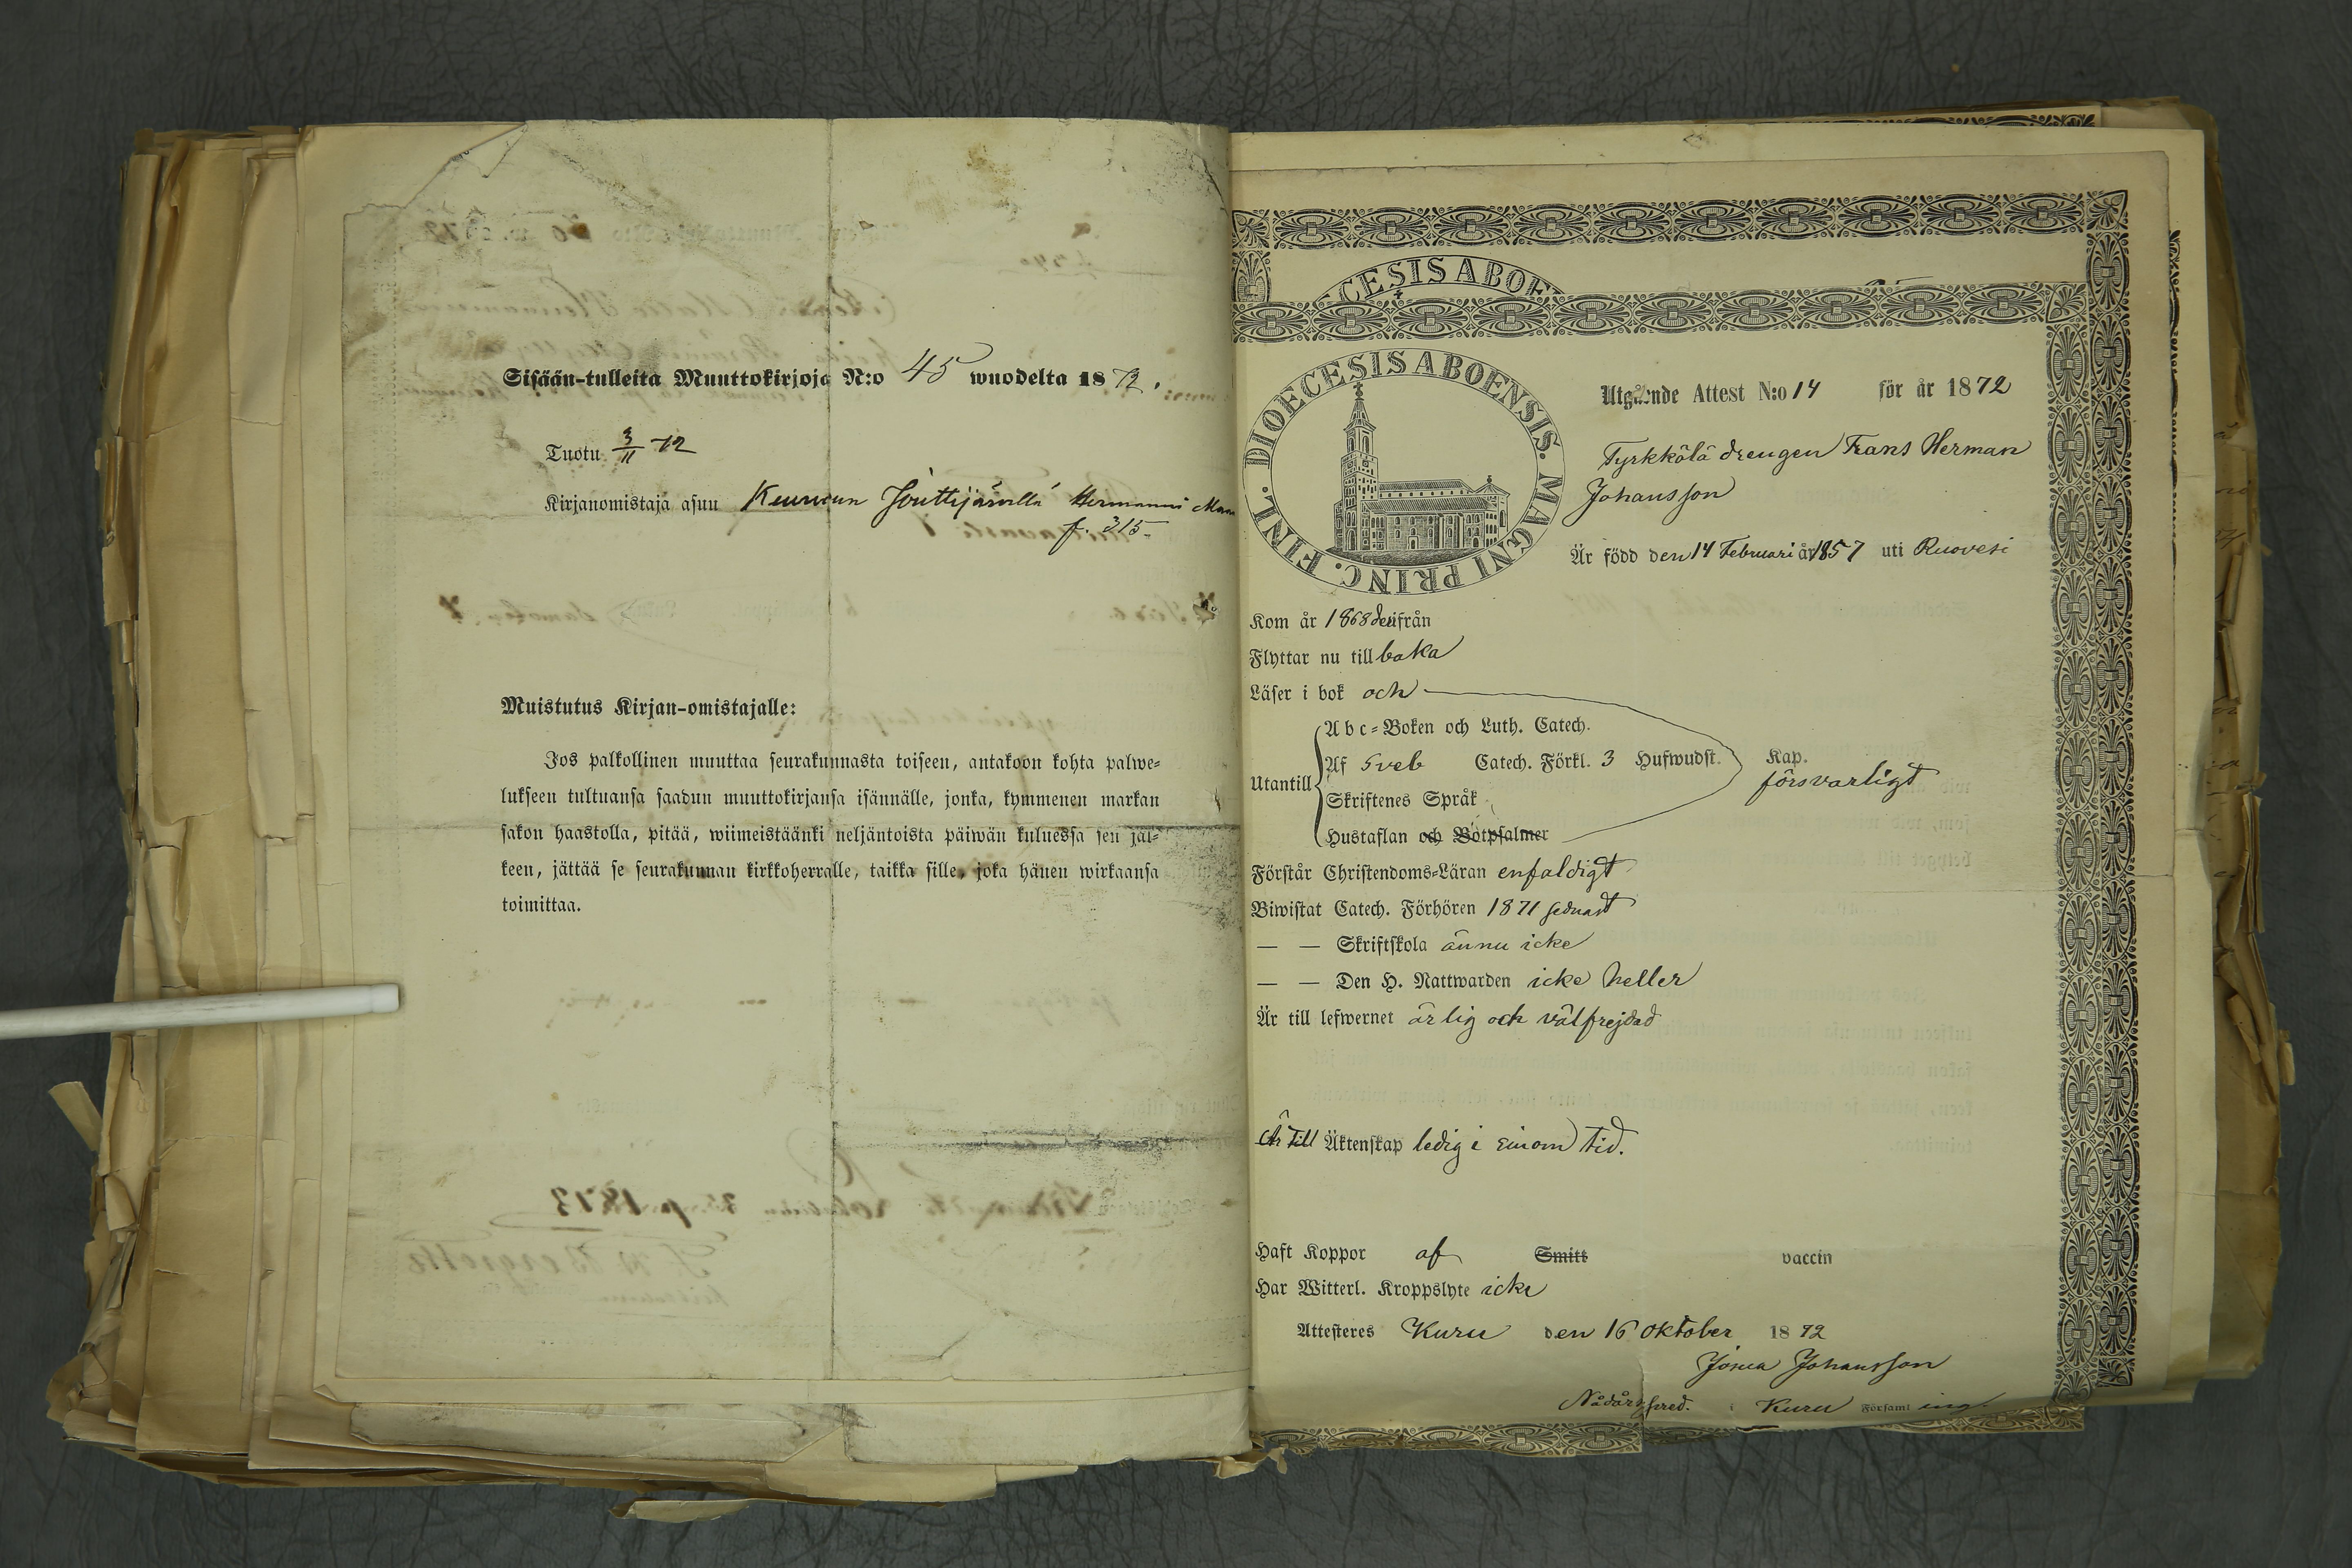 Sisään-tulleita Muuttokirjoja N:o 45 wuodelta 1872.
Tuotu 3/11 72
Kirjanomistaja asuu Keuruun Jouttijärvellä Hermanni
f. 315
Muistutus Kirjan-omistajalle:
Jos palkollinen muuttaa seurakunnasta toiseen, antakoon kohta palwe-
lukseen tultuansa saadun muuttokirjansa isännälle, jonka, kymmenen markan
sakon haastolla, pitää, wiimeistäänki neljäntoista päiwän kuluessa sen jäl-
keen, jättää se seurakunnan kirkkoherralle, taikka sille, joka hänen wirkaansa
toimittaa.
CESIS ABOE
DIOECESIS ABOENSIS. MAGNI PRINC. FINL.
Utgående Attest N:o 14 för år 1872
Tyrkkölä drengen Frans Herman
Johansson
Är född den 14 Februari år 1857 uti Ruovesi
Kom år 1868 derifrån
Flyttar nu till baka
Läser i bok och
Utantill
Abc-Boken och Luth. Catech.
Af Sveb Catech. Förkl. 3 Hufwudst. Kap.
försvarligt
Skriftenes Språk
Hustaflan och Botpsalmer
Förstår Christendoms-Läran enfaldigt
Biwistat Catech. Förhören 1871 sednast
— — Skriftskola ännu icke
— — Den H. Nattwarden icke heller
Är till lefwernet ärlig och välfrejdad
Är till Äktenskap ledig i sinom tid.
Haft Koppor af Smitt vaccin
Har Witterl. Kroppslyte icke
Attesteres Kuru den 16 Oktober 1872
Josua Johansson
Nådårspred. i Kuru Församling.